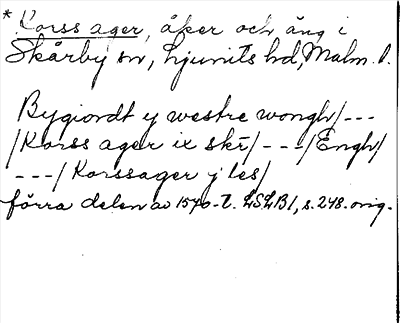 * Korss ager, åker och äng i
Skårby sn, Ljunits hd, Malm. l.
Bygiordt y westre wongh/---
/Korss ager ix skr/---/Engh/
---/Korssager j les/
förra delen av 1540-t. LSLB1, s. 248. orig.